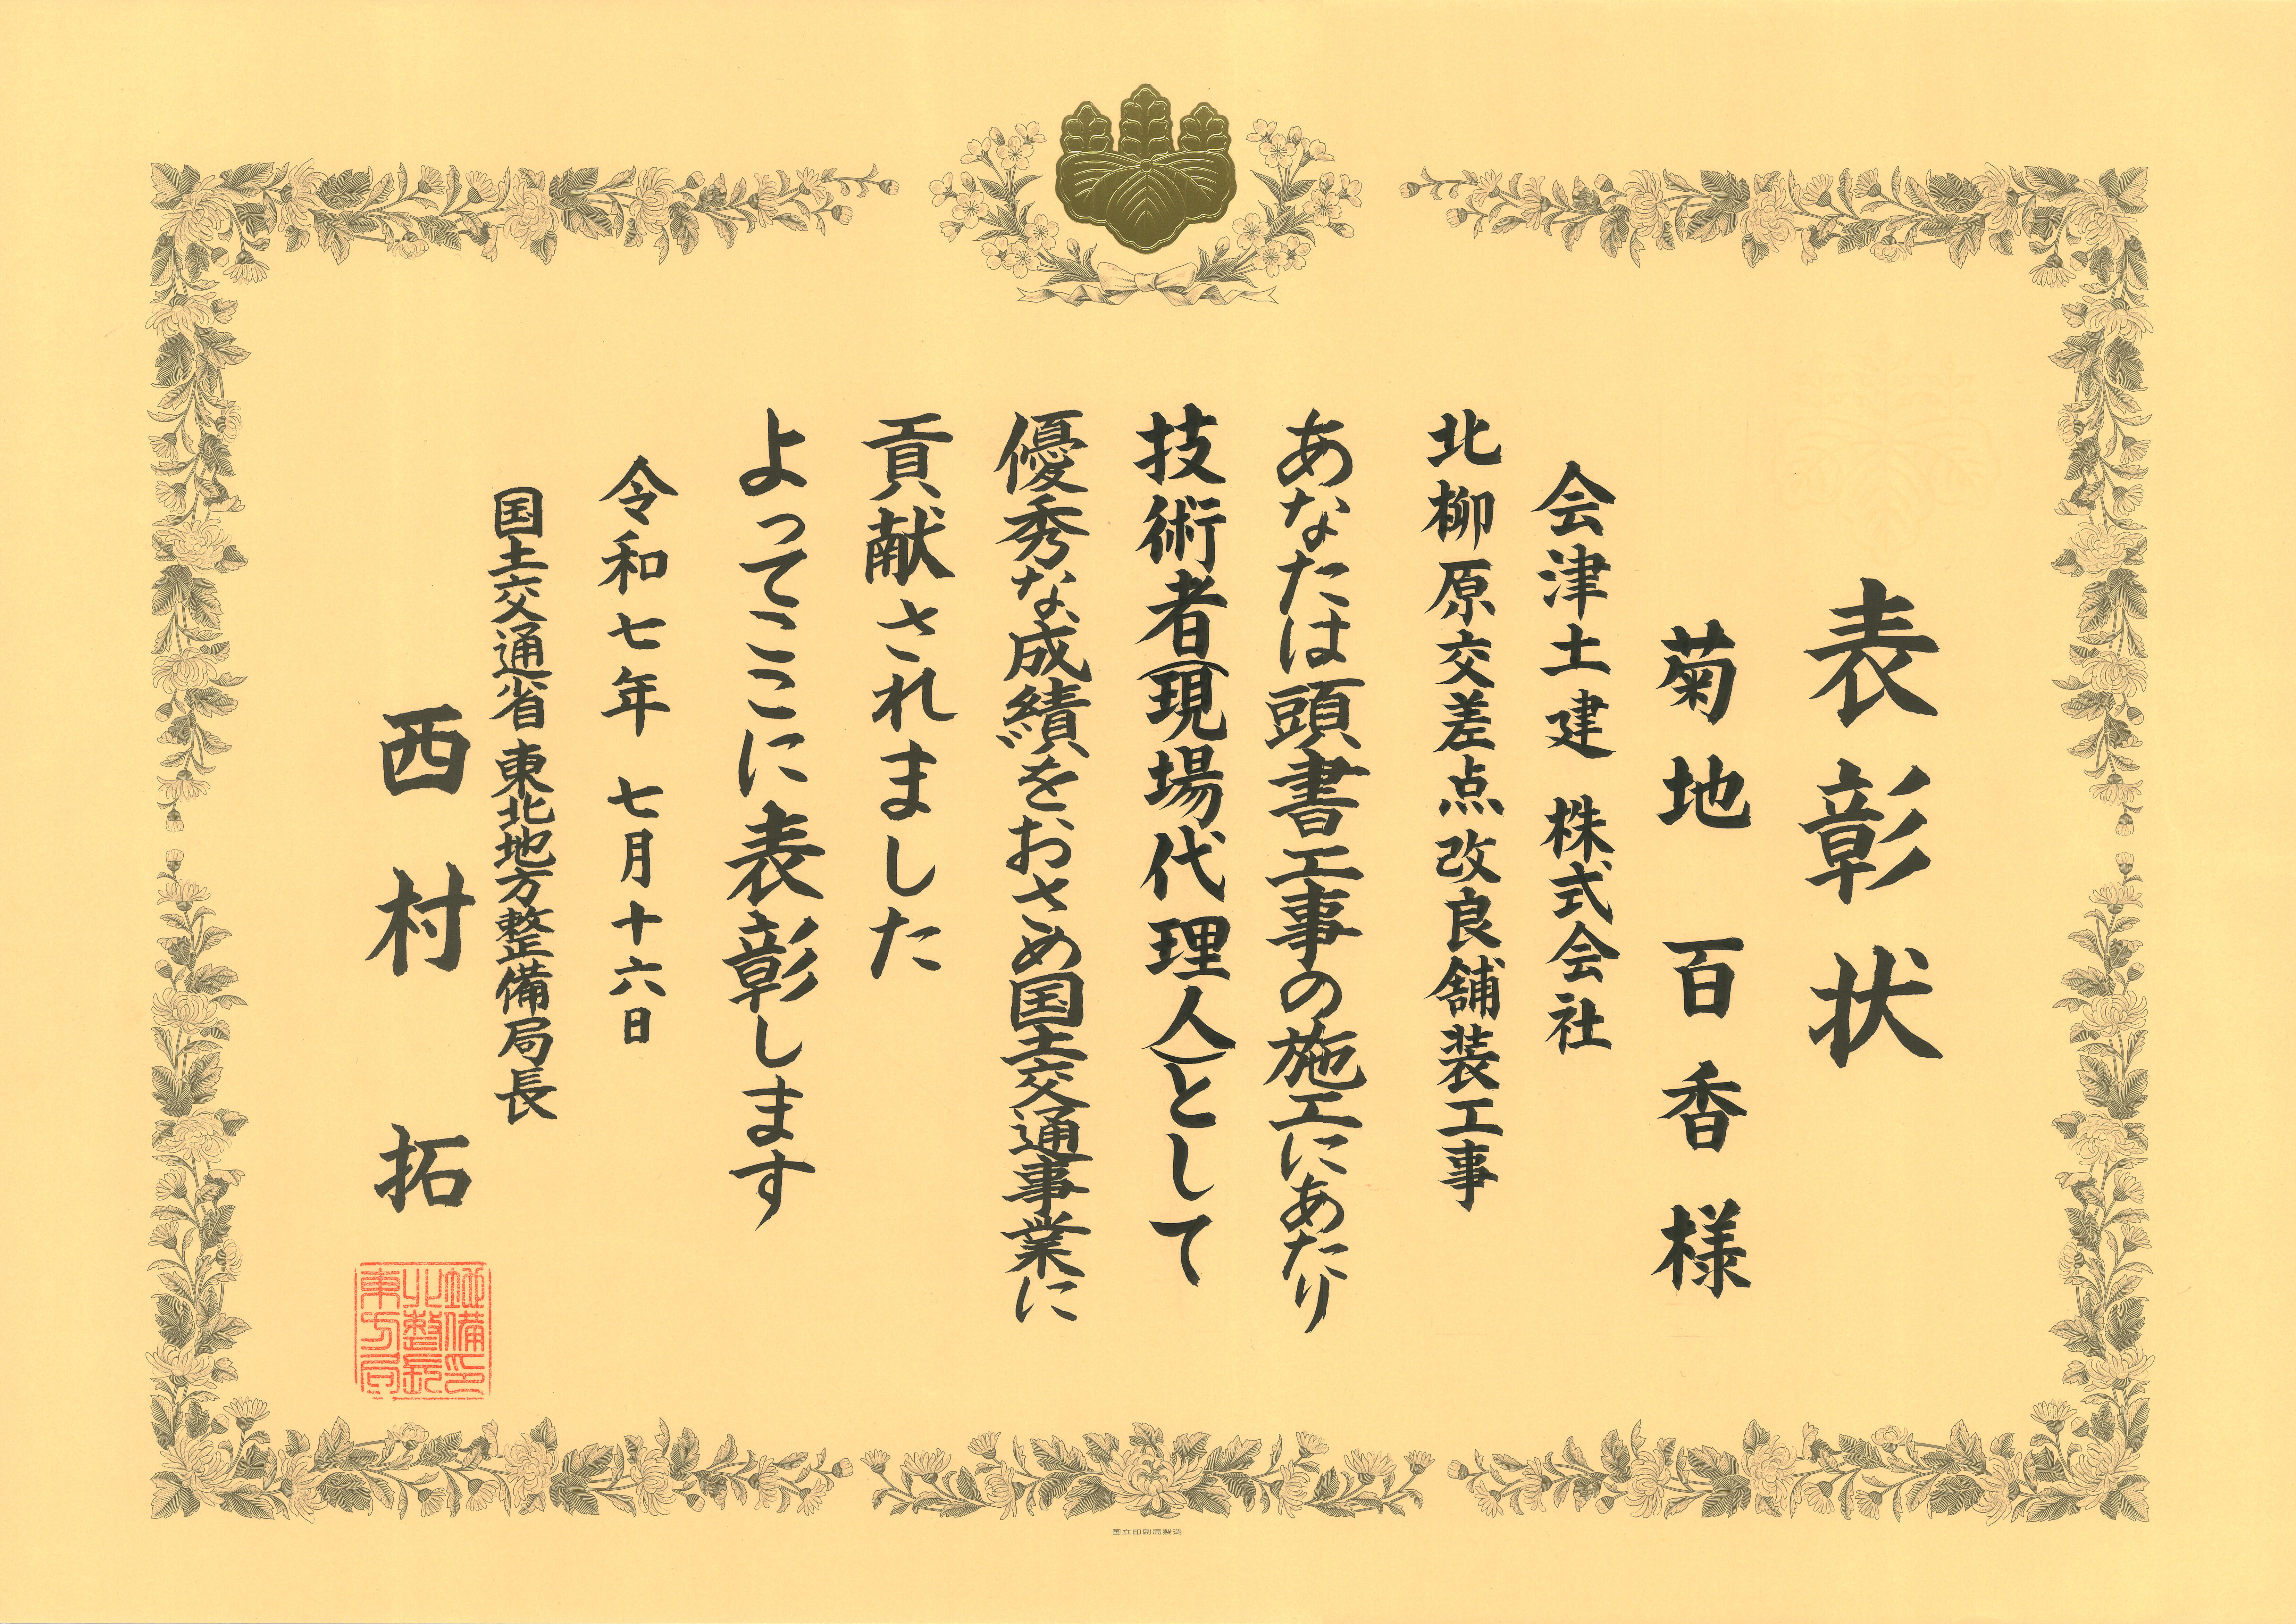 表彰状
菊地百香様
会津土建 株式会社
北柳原交差点改良舗装工事
あなたは頭書工事の施工にあたり
技術者(現場代理人)として
優秀な成績をおさめ国土交通事業に
貢献されました
よってここに表彰します
令和七年 七月十六日
国土交通省 東北地方整備局長
西村 拓
国立印刷局製造